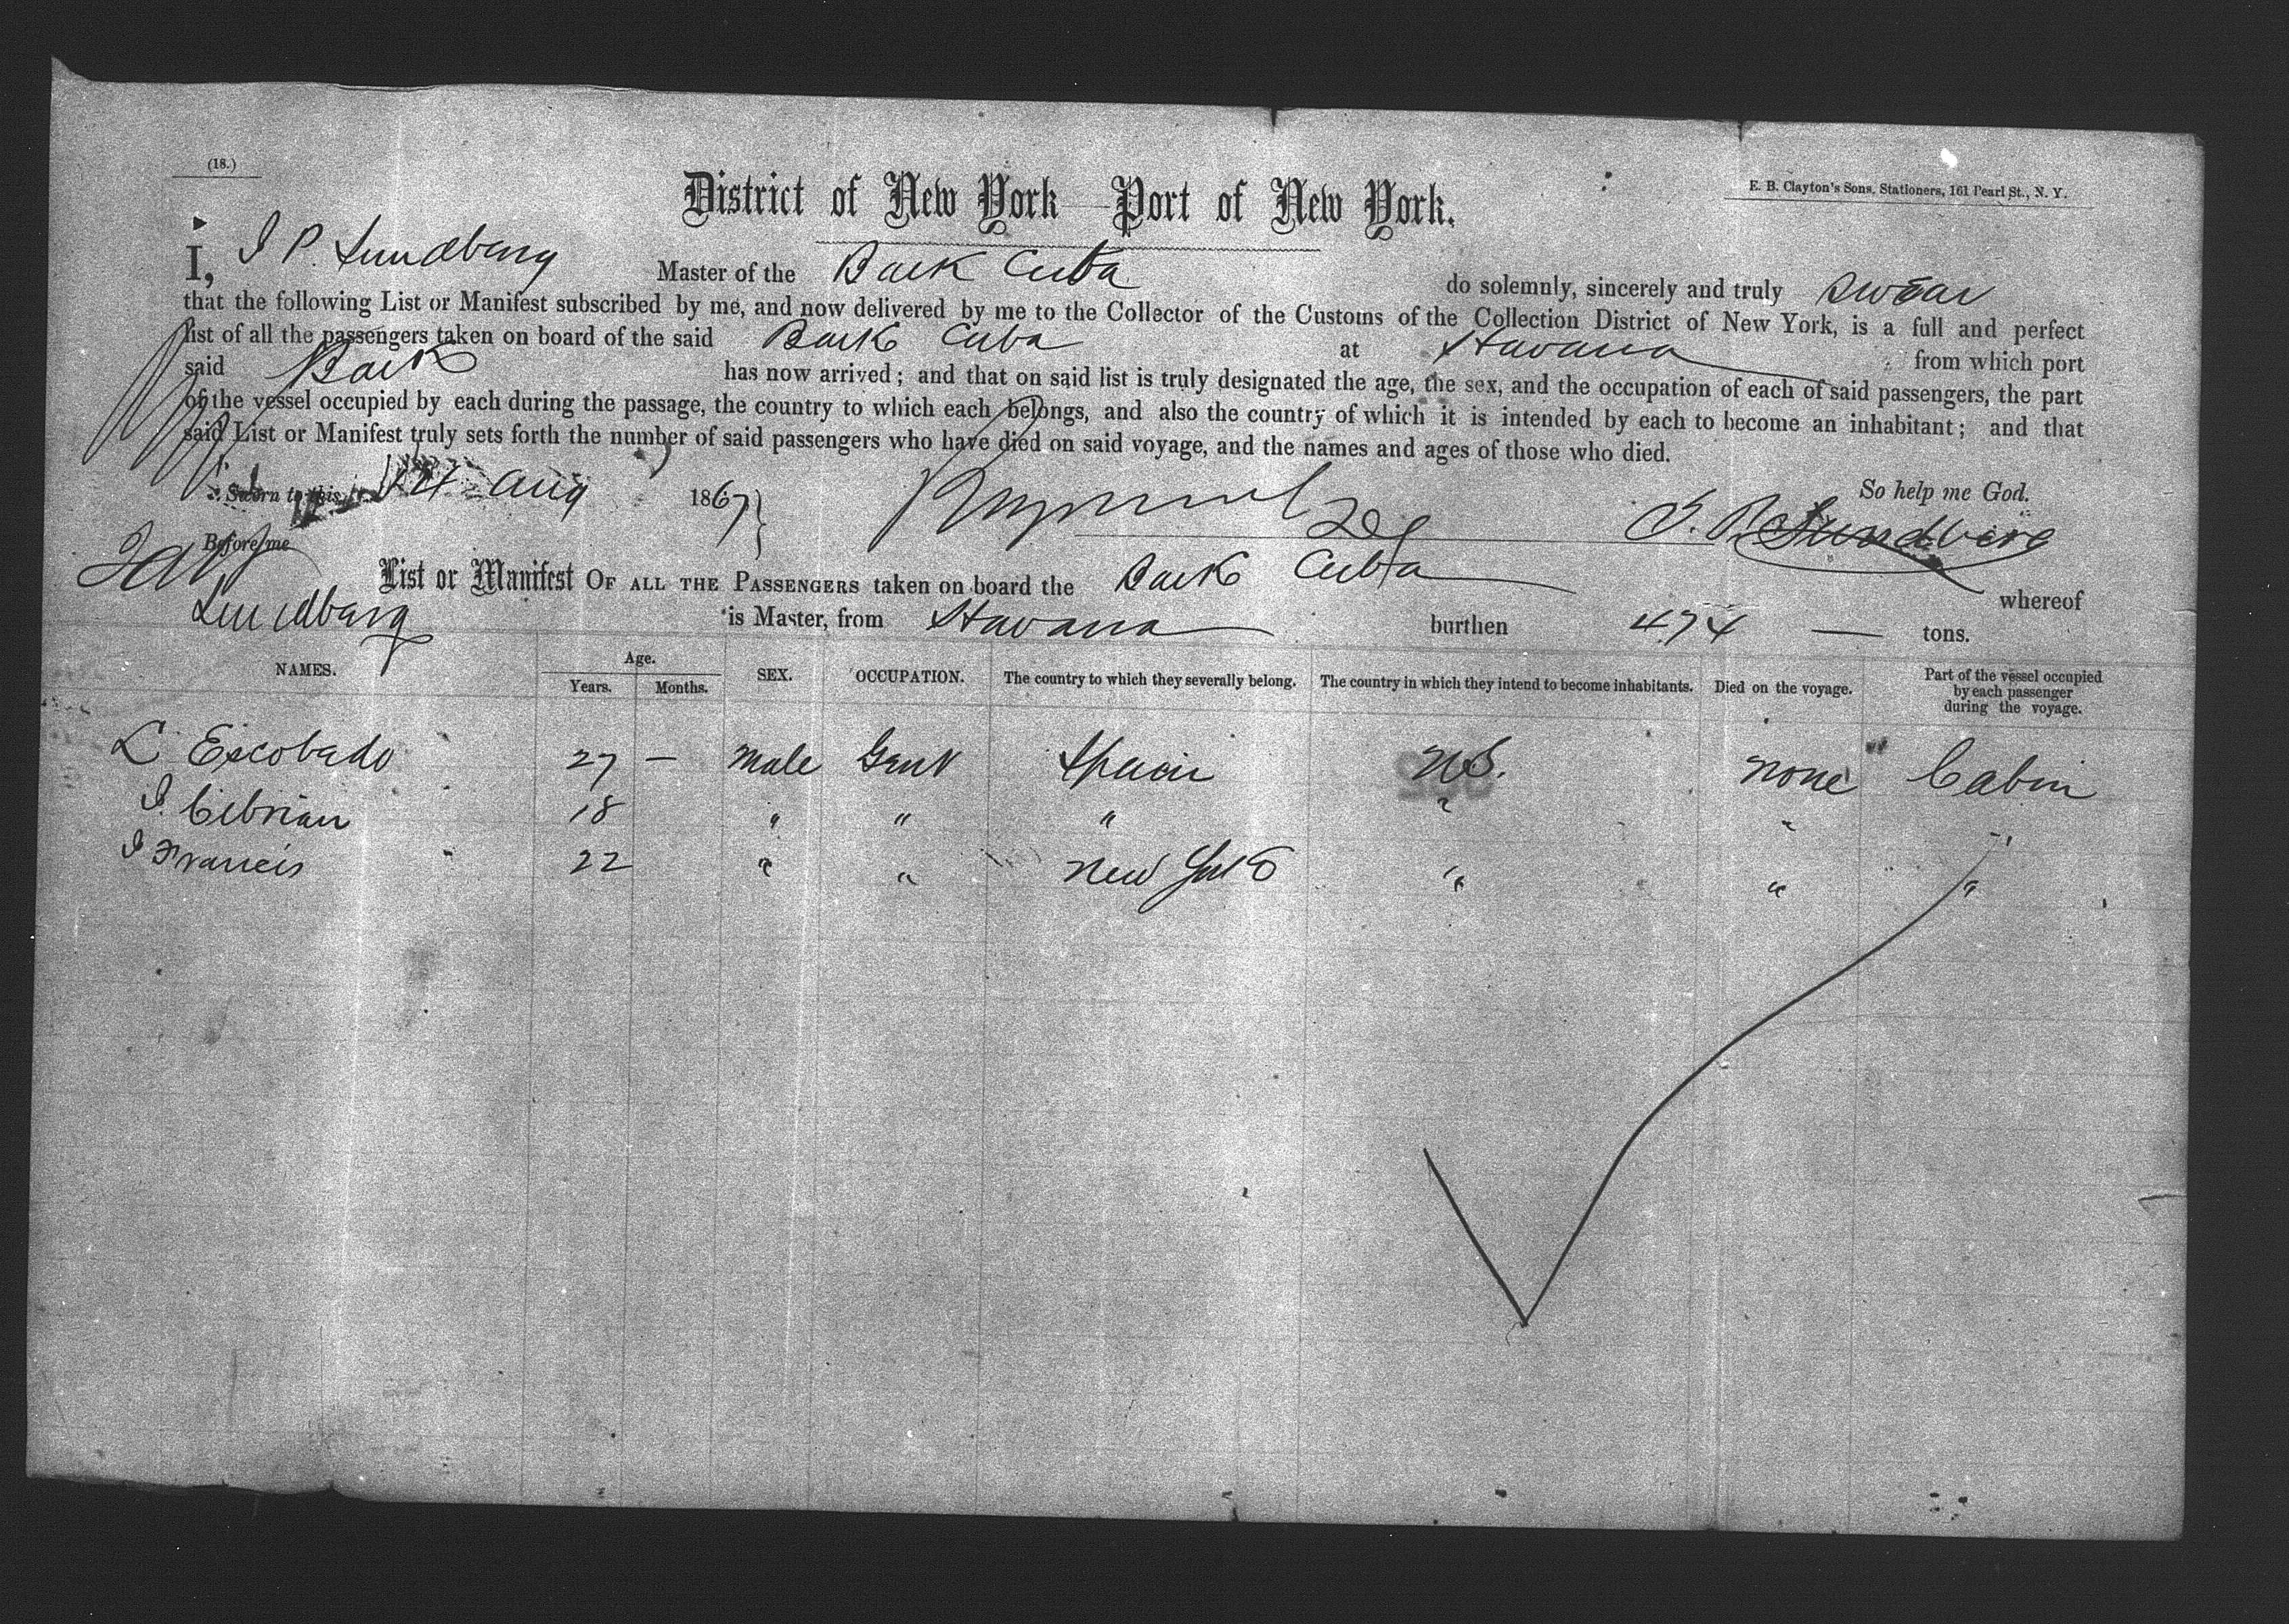 (18.)
District of New York—Port of New York.
E. B. Clayton's Sons, Stationers, 161 Pearl St., N. Y.
I, J P. Lundberg Master of the Bark Cuba do solemnly, sincerely and truly swear
that the following List or Manifest subscribed by me, and now delivered by me to the Collector of the Customs of the Collection District of New York, is a full and perfect
list of all the passengers taken on board of the said Bark Cuba at Havana from which port
said Bark has now arrived; and that on said list is truly designated the age, the sex, and the occupation of each of said passengers, the part
of the vessel occupied by each during the passage, the country to which each belongs, and also the country of which it is intended by each to become an inhabitant; and that
said List or Manifest truly sets forth the number of said passengers who have died on said voyage, and the names and ages of those who died.
So help me God.
Sworn to this Aug 1867
J. P. Lundberg
Before me
List or Manifest OF ALL THE PASSENGERS taken on board the Bark Cuba whereof
Lundberg is Master, from Havana burthen 474 — tons.
NAMES. Age. Years. Months. SEX. OCCUPATION. The country to which they severally belong. The country in which they intend to become inhabitants. Died on the voyage. Part of the vessel occupied by each passenger during the voyage.
L Escobado 27 — Male Gent Spain U.S. none Cabin
J. Cibrian 18 " " " " " "
J Francis 22 " " New York " " "